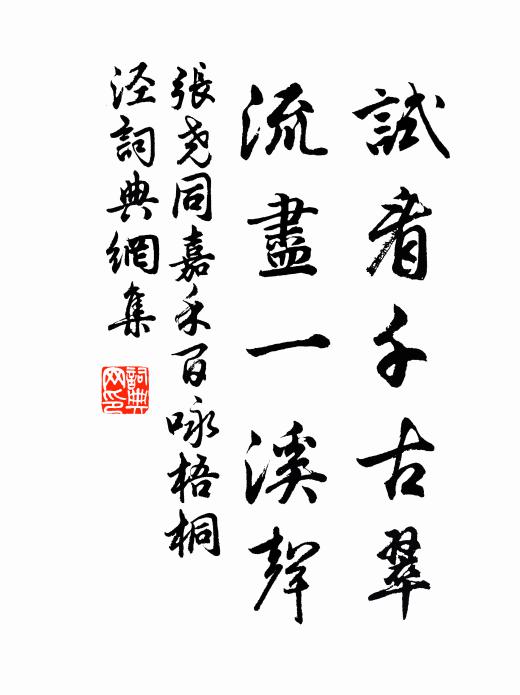 試看千古翠
流盡一溪聲
張尧同嘉禾百咏梧桐
涇詞典網集
詞典网印